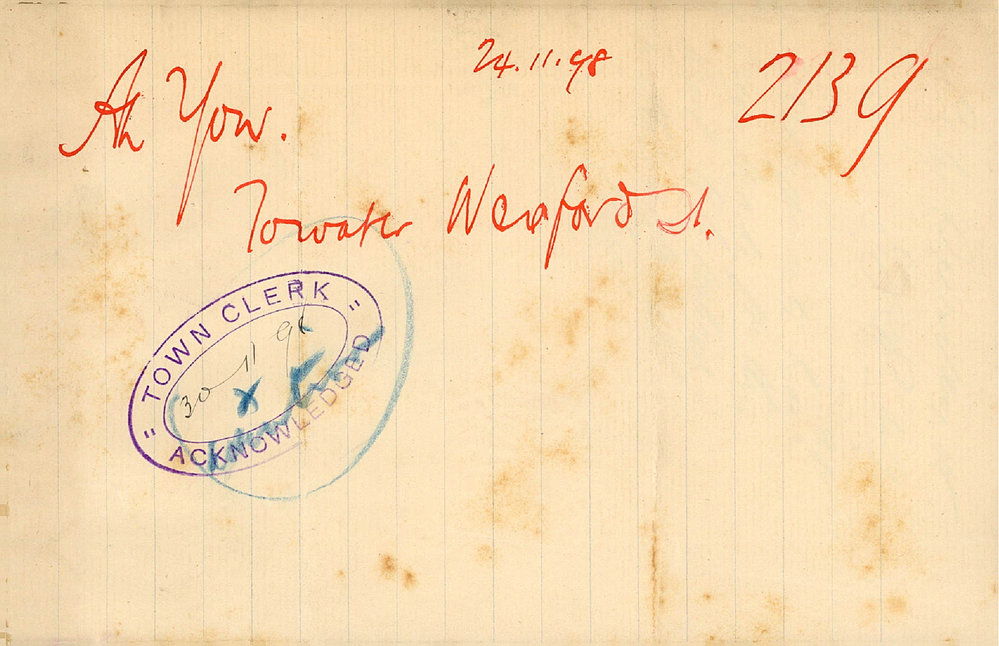 24.11.98
2139
Ah Yow.
To water Wexford St.
" TOWN CLERK "
30 11 98
x
ACKNOWLEDGED